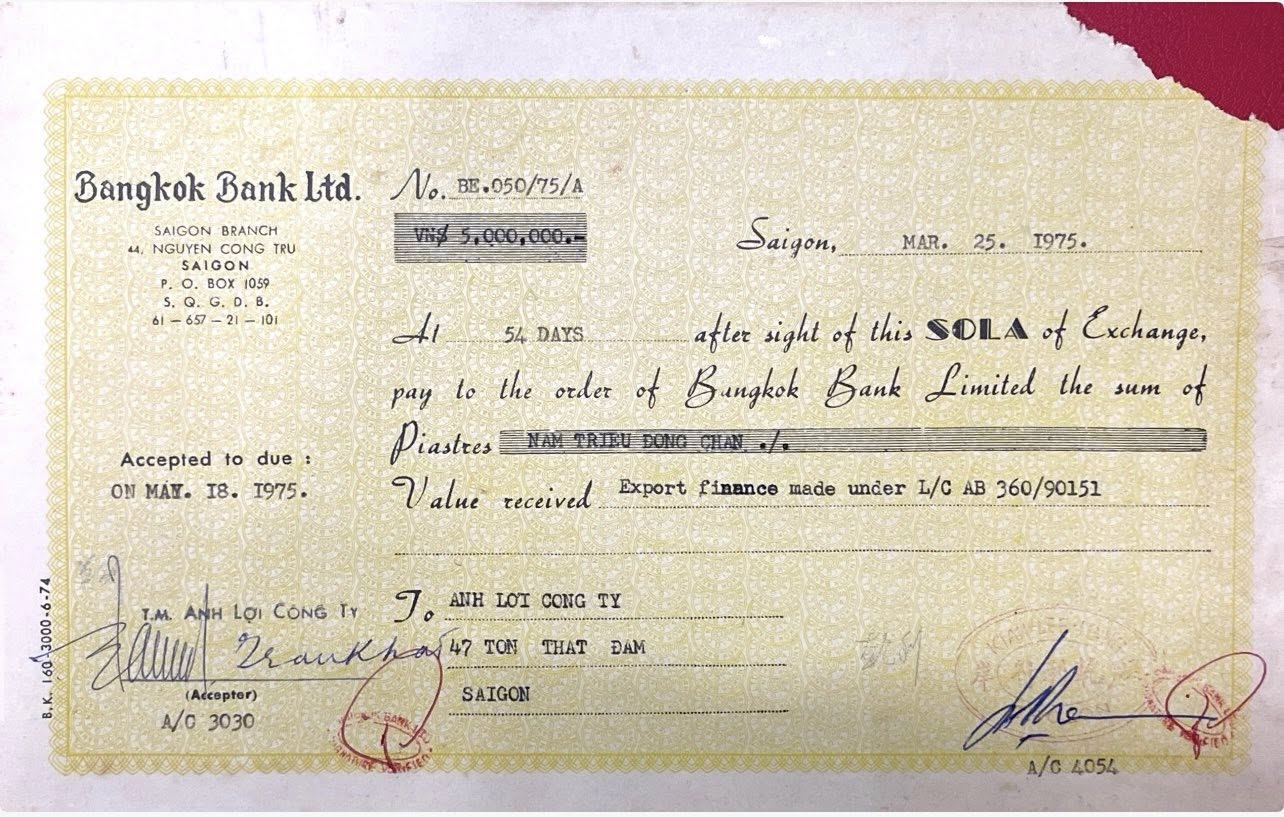 Bangkok Bank Ltd.
SAIGON BRANCH
44, NGUYEN CONG TRU
SAIGON
P. O. BOX 1059
S. Q. G. D. B.
61 — 657 — 21 — 101
No. BE.050/75/A
VN$ 5,000,000.-
Saigon, MAR. 25. 1975.
At 54 DAYS after sight of this SOLA of Exchange,
pay to the order of Bangkok Bank Limited the sum of
Piastres NAM TRIEU DONG CHAN ./.
Value received Export finance made under L/C AB 360/90151
Accepted to due :
ON MAY. 18. 1975.
T.M. ANH LỢI CÔNG TY
(Accepter)
A/C 3030
To ANH LOI CONG TY
47 TON THAT ĐAM
SAIGON
A/C 4054
B.K. 160-3000-6-74